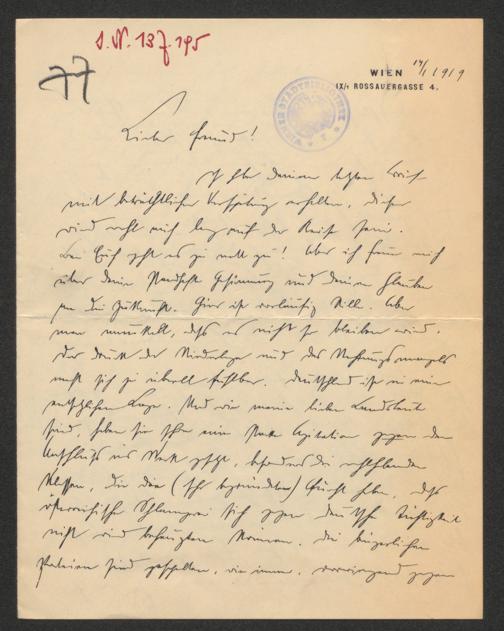 I. N. 137.195
77
WIEN 14/1 1919
IX/1 ROSSAUERGASSE 4.
WIENER STADTBIBLIOTHEK
Lieber Freund!
Ich habe deinen letzten Brief
mit beträchtlicher Verspätung erhalten, dieser
wird wohl auch lang auf der Reise sein.
Bei Euch geht es ja nett zu! Aber ich freue mich
über deine standhafte Gesinnung und deinen Glauben
an die Zukunft. Hier ist vorläufig Stille. Aber
man munkelt, dass es nicht so bleiben wird.
Der Druck der Niederlage und des Nahrungsmangels
macht sich ja überall fühlbar. Deutschland ist in einer
entsetzlichen Lage. Und wie meine lieben Landsleute
sind, haben sie schon eine starke Agitation gegen den
Anschluss ins Werk gesetzt, besonders die
Klassen, die die (sehr begründete) Furcht haben, dass
österreichische Schlamperei sich gegen deutsche Tüchtigkeit
nicht wird behaupten können. Die bürgerlichen
Parteien sind gespalten, wie immer, vorwiegend gegen